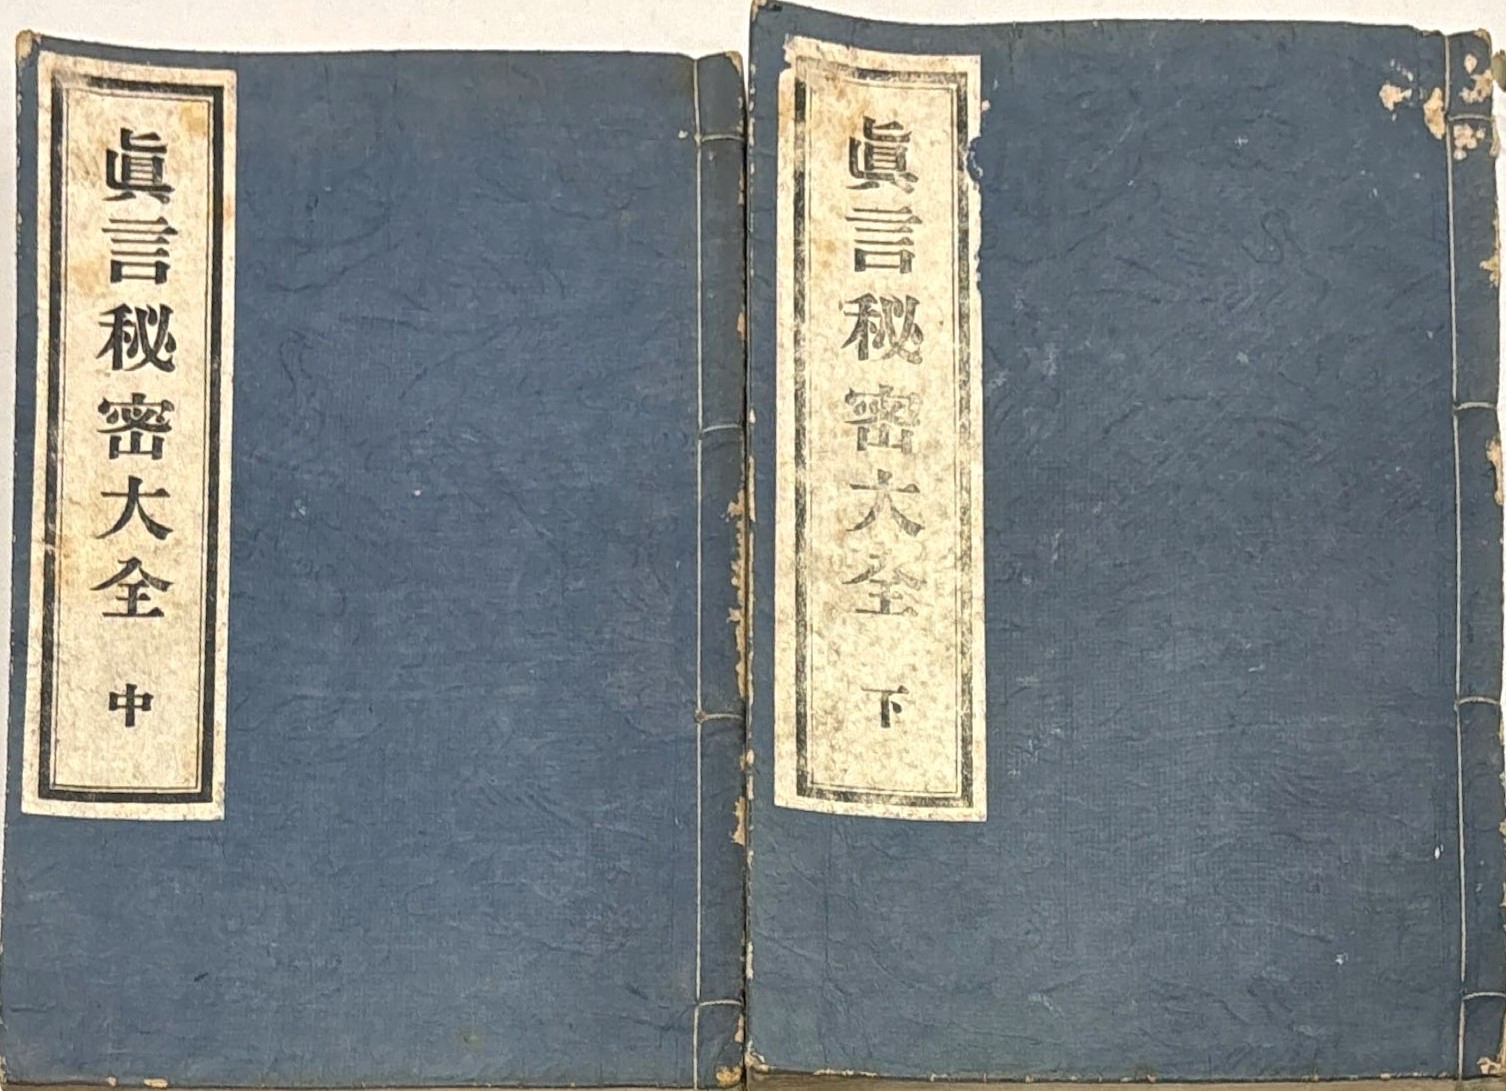 眞言秘密大全 中
眞言秘密大全 下